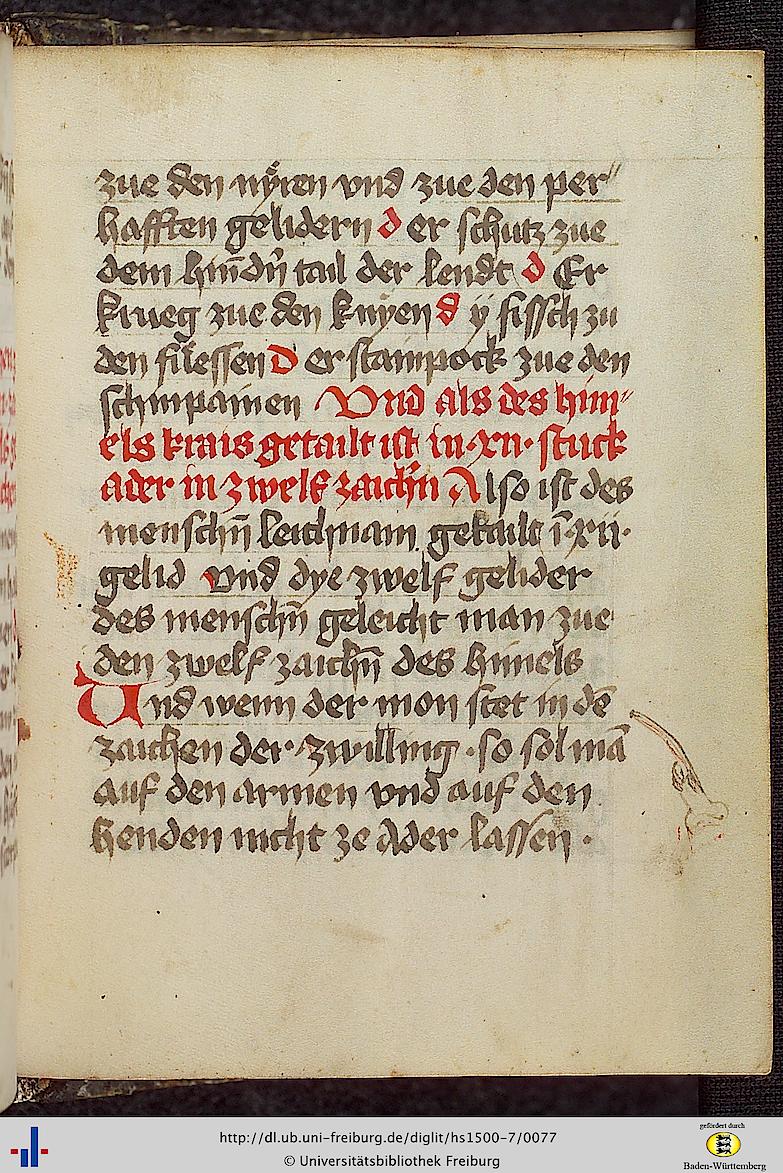 zue den nÿren vnd zue den per〃
hafften gelidern d er schutz zue
dem hin̄dn̄ tail der lendt d Er
krueg zue den knyen d ÿ fissch zu
den fuͤessen D er stainpock zue den
schinpainen Vnd als des him〃
els krais getailt ist in·xii·stuck
ader in zwelf zaichn̄ Also ist des
menschn̄ leichnam getailt ī·xii·
gelid vnd dye zwelf gelider
des menschn̄ geleicht man zue
den zwelf zaichn̄ des himels
Und wenn der mon stet in dē
zaichen der zwilling·so sol mā
auf den armen vnd auf den
henden nicht ze ader lassen·
http://dl.ub.uni-freiburg.de/diglit/hs1500-7/0077
© Universitätsbibliothek Freiburg
gefördert durch
Baden-Württemberg